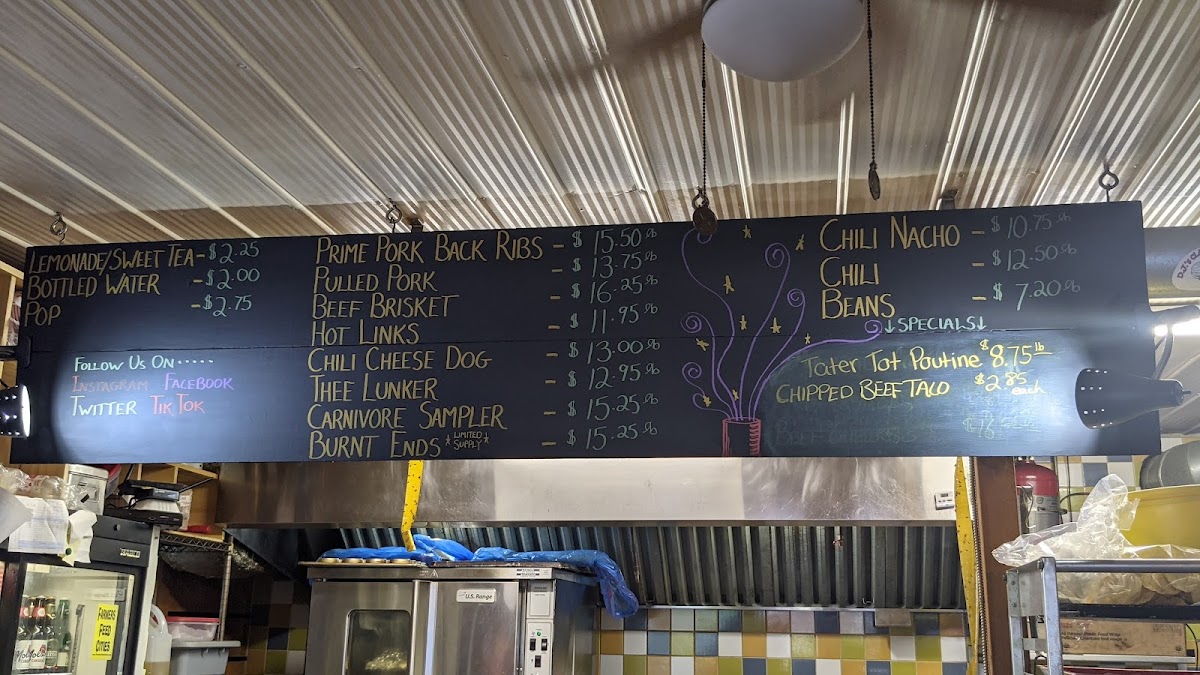 Lemonade/Sweet Tea - $2.25
Bottled Water - $2.00
Pop - $2.75
Follow Us On.....
Instagram Facebook
Twitter Tik Tok
Prime Pork Back Ribs - $15.50 lb
Pulled Pork - $13.75 lb
Beef Brisket - $16.25 lb
Hot Links - $11.95 lb
Chili Cheese Dog - $13.00 lb
Thee Lunker - $12.95 lb
Carnivore Sampler - $15.25 lb
Burnt Ends *Limited Supply* - $15.25 lb
Chili Nacho - $10.75 lb
Chili - $12.50 lb
Beans - $7.20 lb
↓Specials↓
Tater Tot Poutine $8.75 lb
Chipped Beef Taco $2.85 each
U.S. Range
Farmers
Feed
Cities